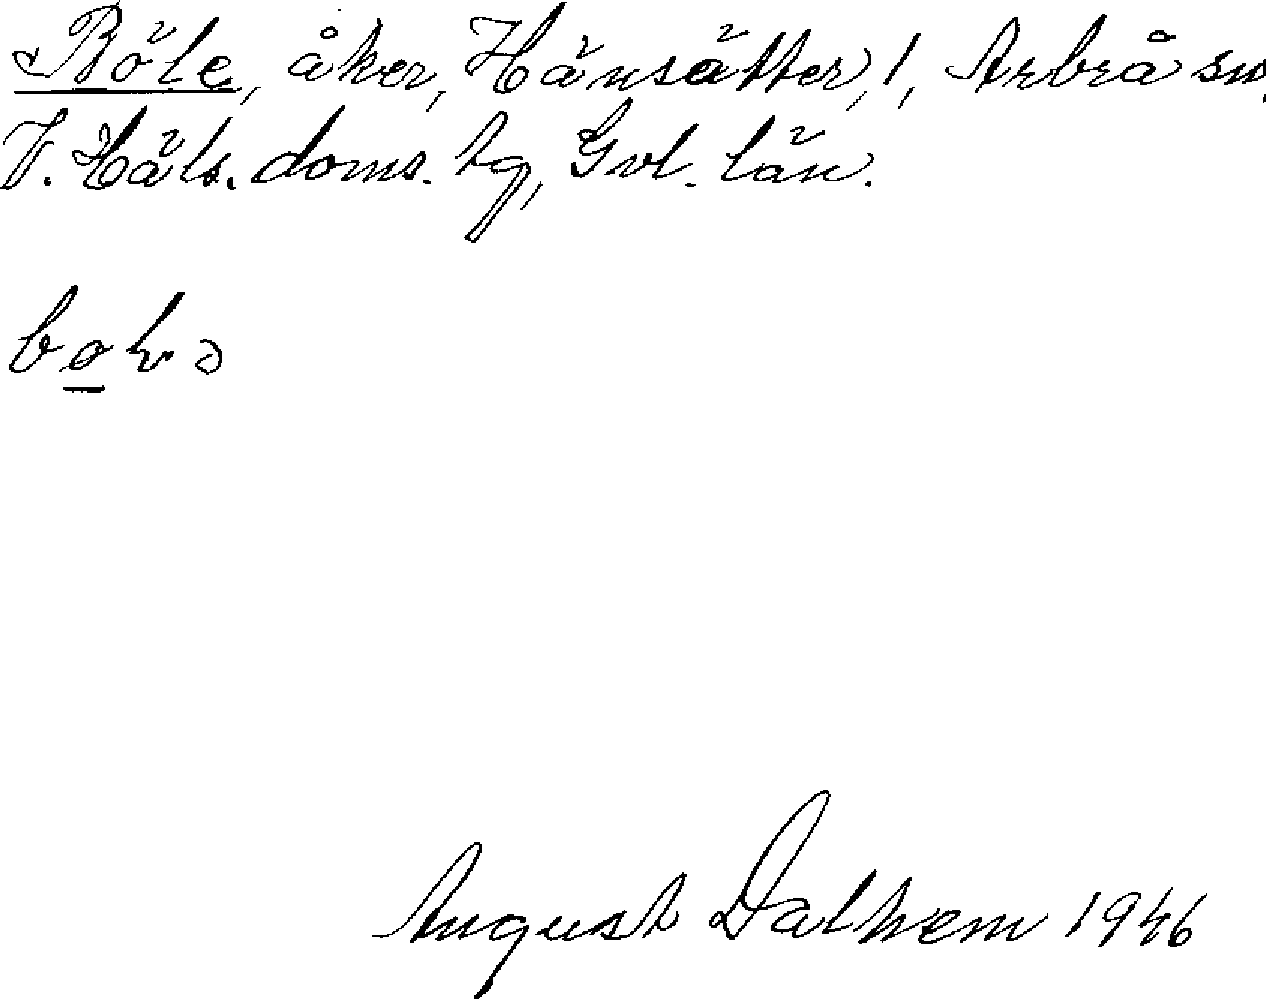 Böle, åker, Hänsätter, 1, Arbrå sn,
V. Häls. doms. tg, Gvl. län.
August Dalhem 1946